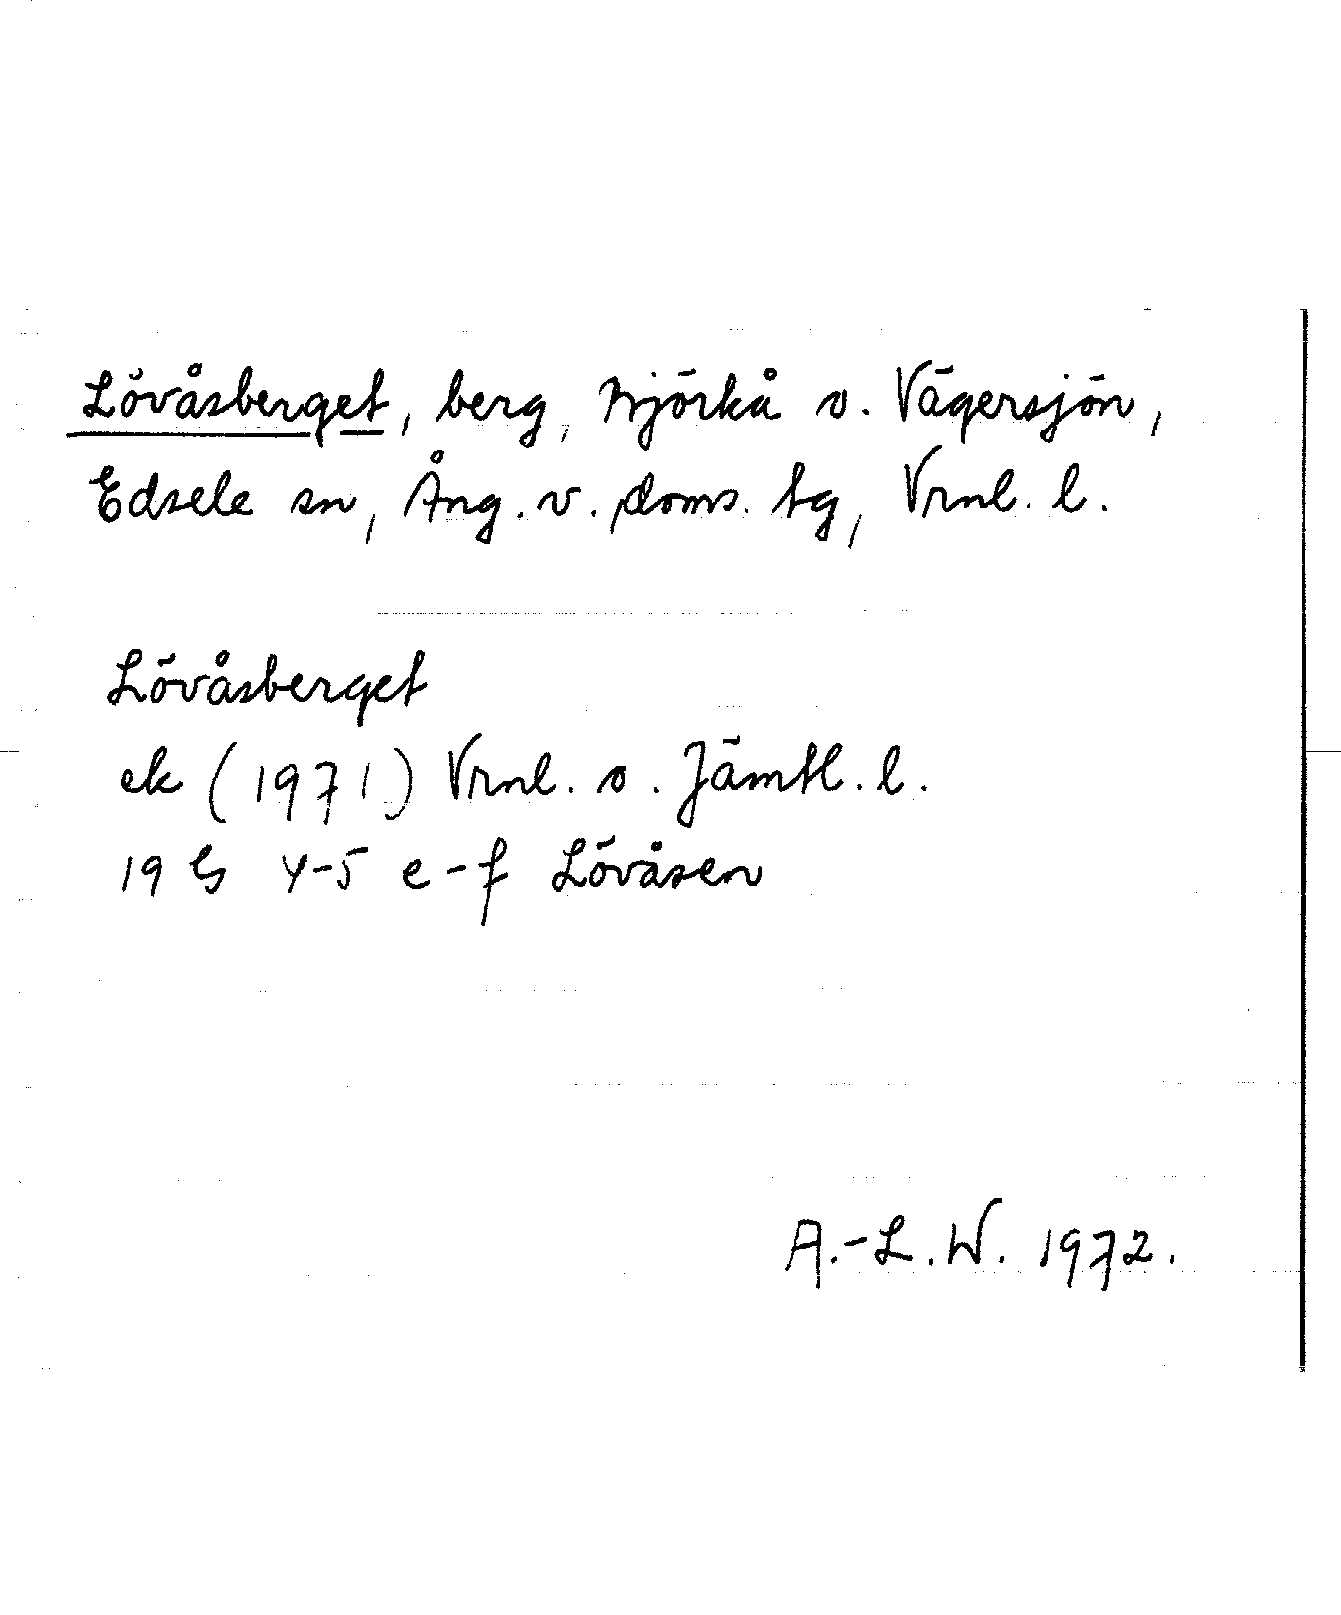 Lövåsberget, berg, Björkå o. Vägersjön,
Edsele sn, Ång. v. doms. tg, Vrnl. l.
Lövåsberget
ek (1971) Vrnl. o. Jämtl. l.
19 G 4-5 e-f Lövåsen
A.-L. W. 1972.